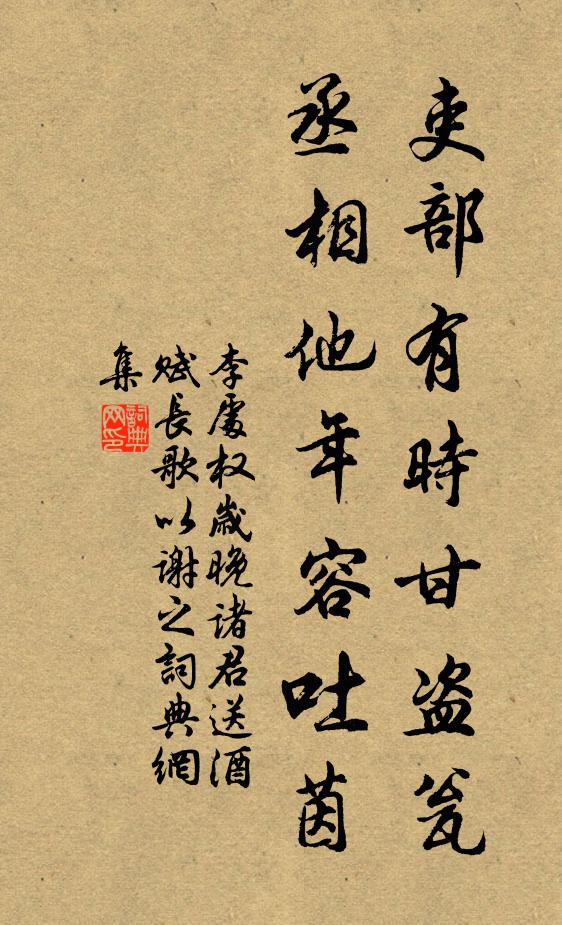 吏部有時甘盗瓮
丞相他年容吐茵
李處权歲晚諸君送酒
赋長歌以謝之詞典網
集
詞典网印